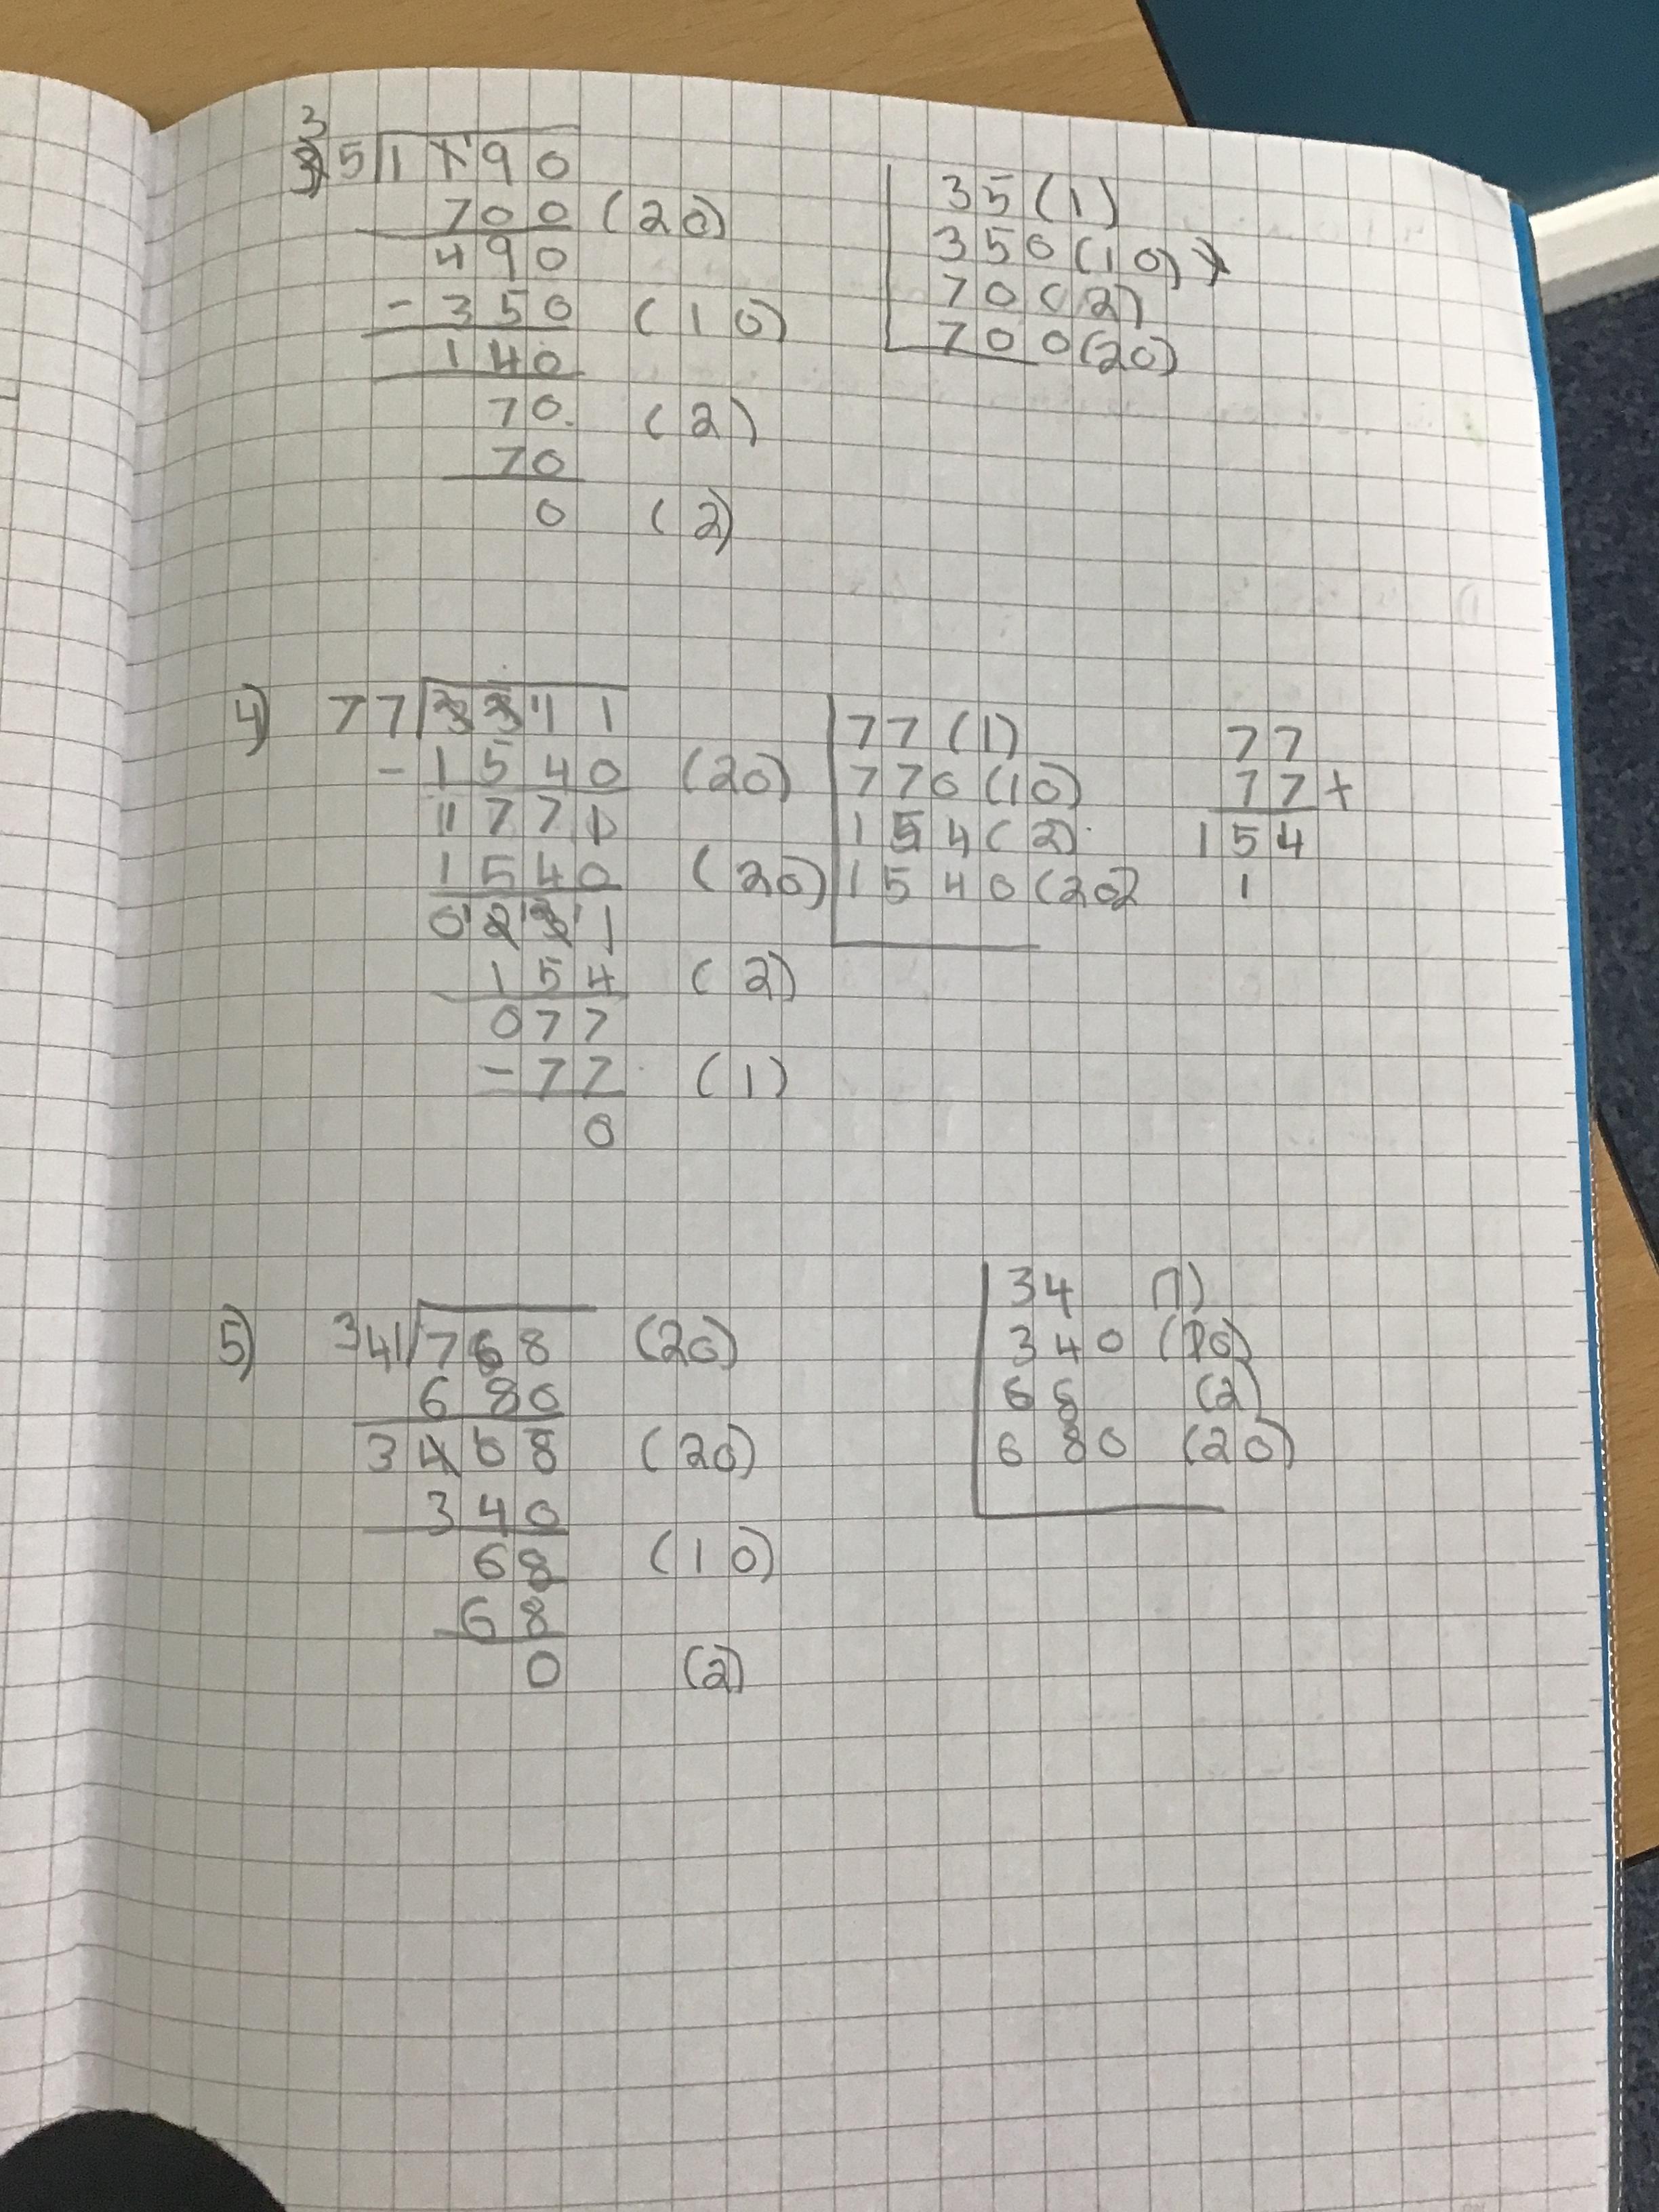 3
5 1 1 9 0
7 0 0 (20)
4 9 0
- 3 5 0 (10)
1 4 0
7 0 (2)
7 0
0 (2)
35 (1)
350 (10)
70 (2)
700 (20)
4) 77 3 3 1 1
- 1 5 4 0 (20)
1 7 7 1
1 5 4 0 (20)
0 2 3 1
1 5 4 (2)
0 7 7
- 7 7 (1)
0
77 (1)
770 (10)
154 (2)
1540 (20)
77
77 +
154
1
5) 34 1 7 6 8 (20)
6 8 0
3 4 0 8 (20)
3 4 0
6 8 (10)
6 8
0 (2)
34 (1)
340 (10)
(2)
680 (20)